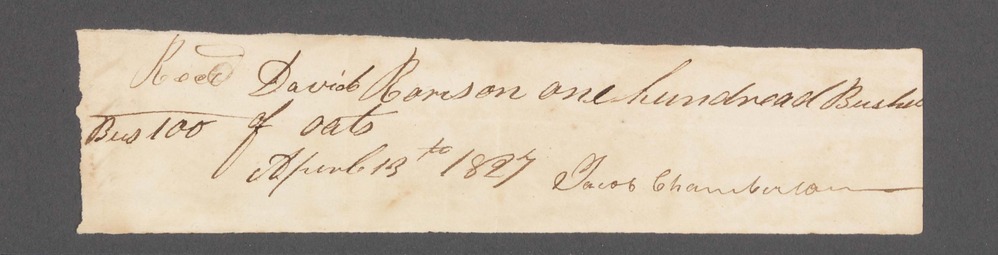 Recd David Ramson one hundread Bushel
Bus 100 of oats
Aperl 13th 1827 Jacob Chamberlain